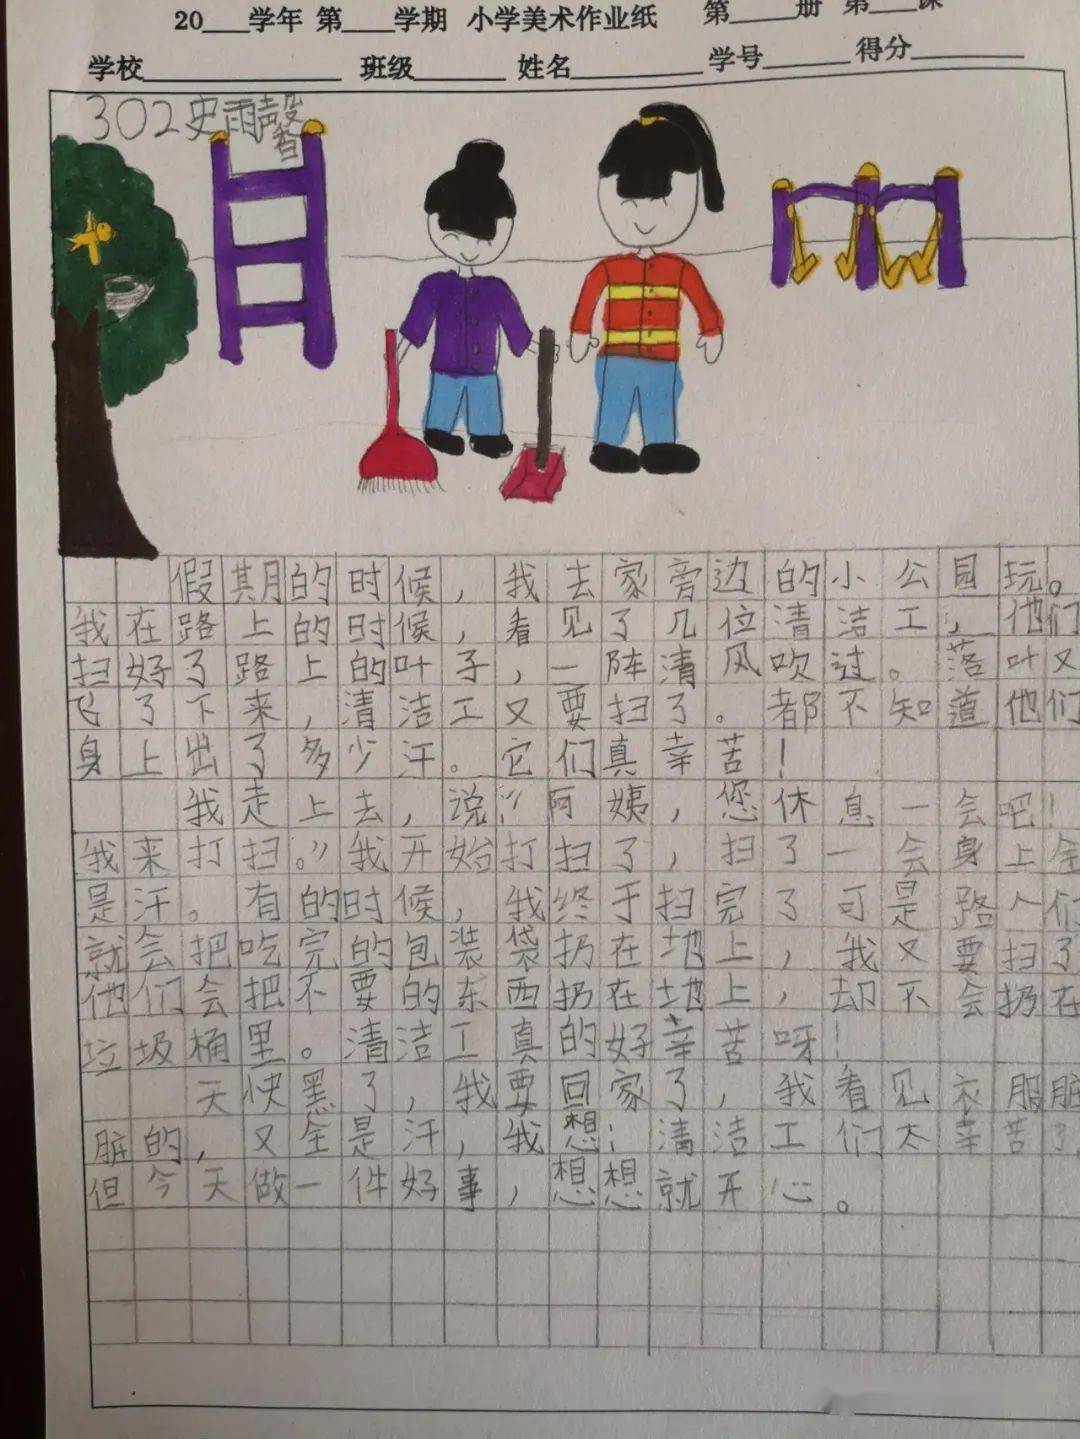 20___学年 第____学期 小学美术作业纸 第_____册 第___课
学校______________ 班级_______ 姓名__________ 学号______ 得分________
302史雨馨
假期的时候，我去家旁边的小公园玩。
我在路上的时候，看见了几位清洁工，他们
扫好了路上的叶子，一阵清风吹过。落叶又
飞了下来，清洁工又要扫了。都不知道他们
身上出了多少汗。它们真幸苦！
我走上去，说：“阿姨，您休息一会吧！
我来打扫。”我开始打扫了，扫了一会身上全
是汗。有的时候，我终于扫完了可是路人们
就会把吃完的包装袋扔在地上，我又要扫了
他们会把不要的东西扔在地上，却不会扔在
垃圾桶里。清洁工真的好辛苦呀！
天快黑了，我要回家了，我看见衣服脏
脏的，又全是汗，我想：清洁工们太幸苦了，
但今天做一件好事，想想就开心。